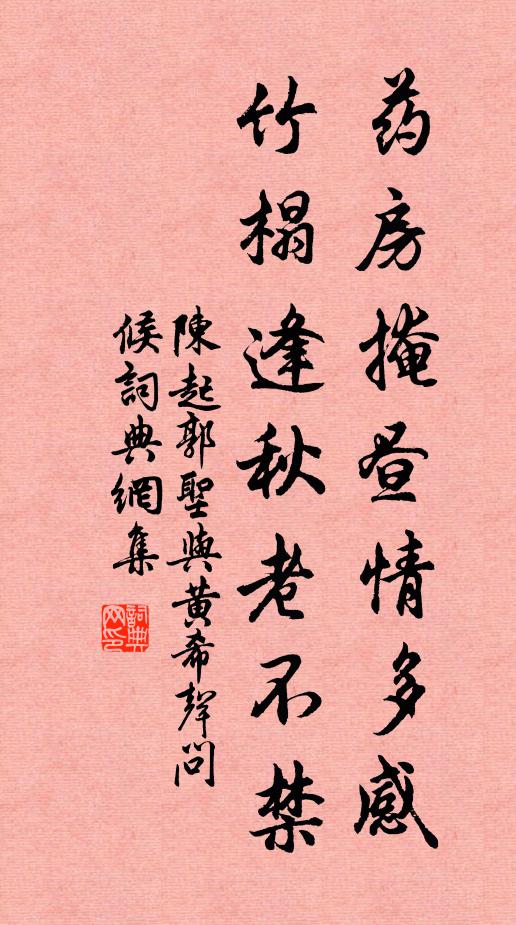 药房掩昼情多感
竹榻逢秋老不禁
陳起郭聖與黄希聲問
候詞典網集
詞典网印